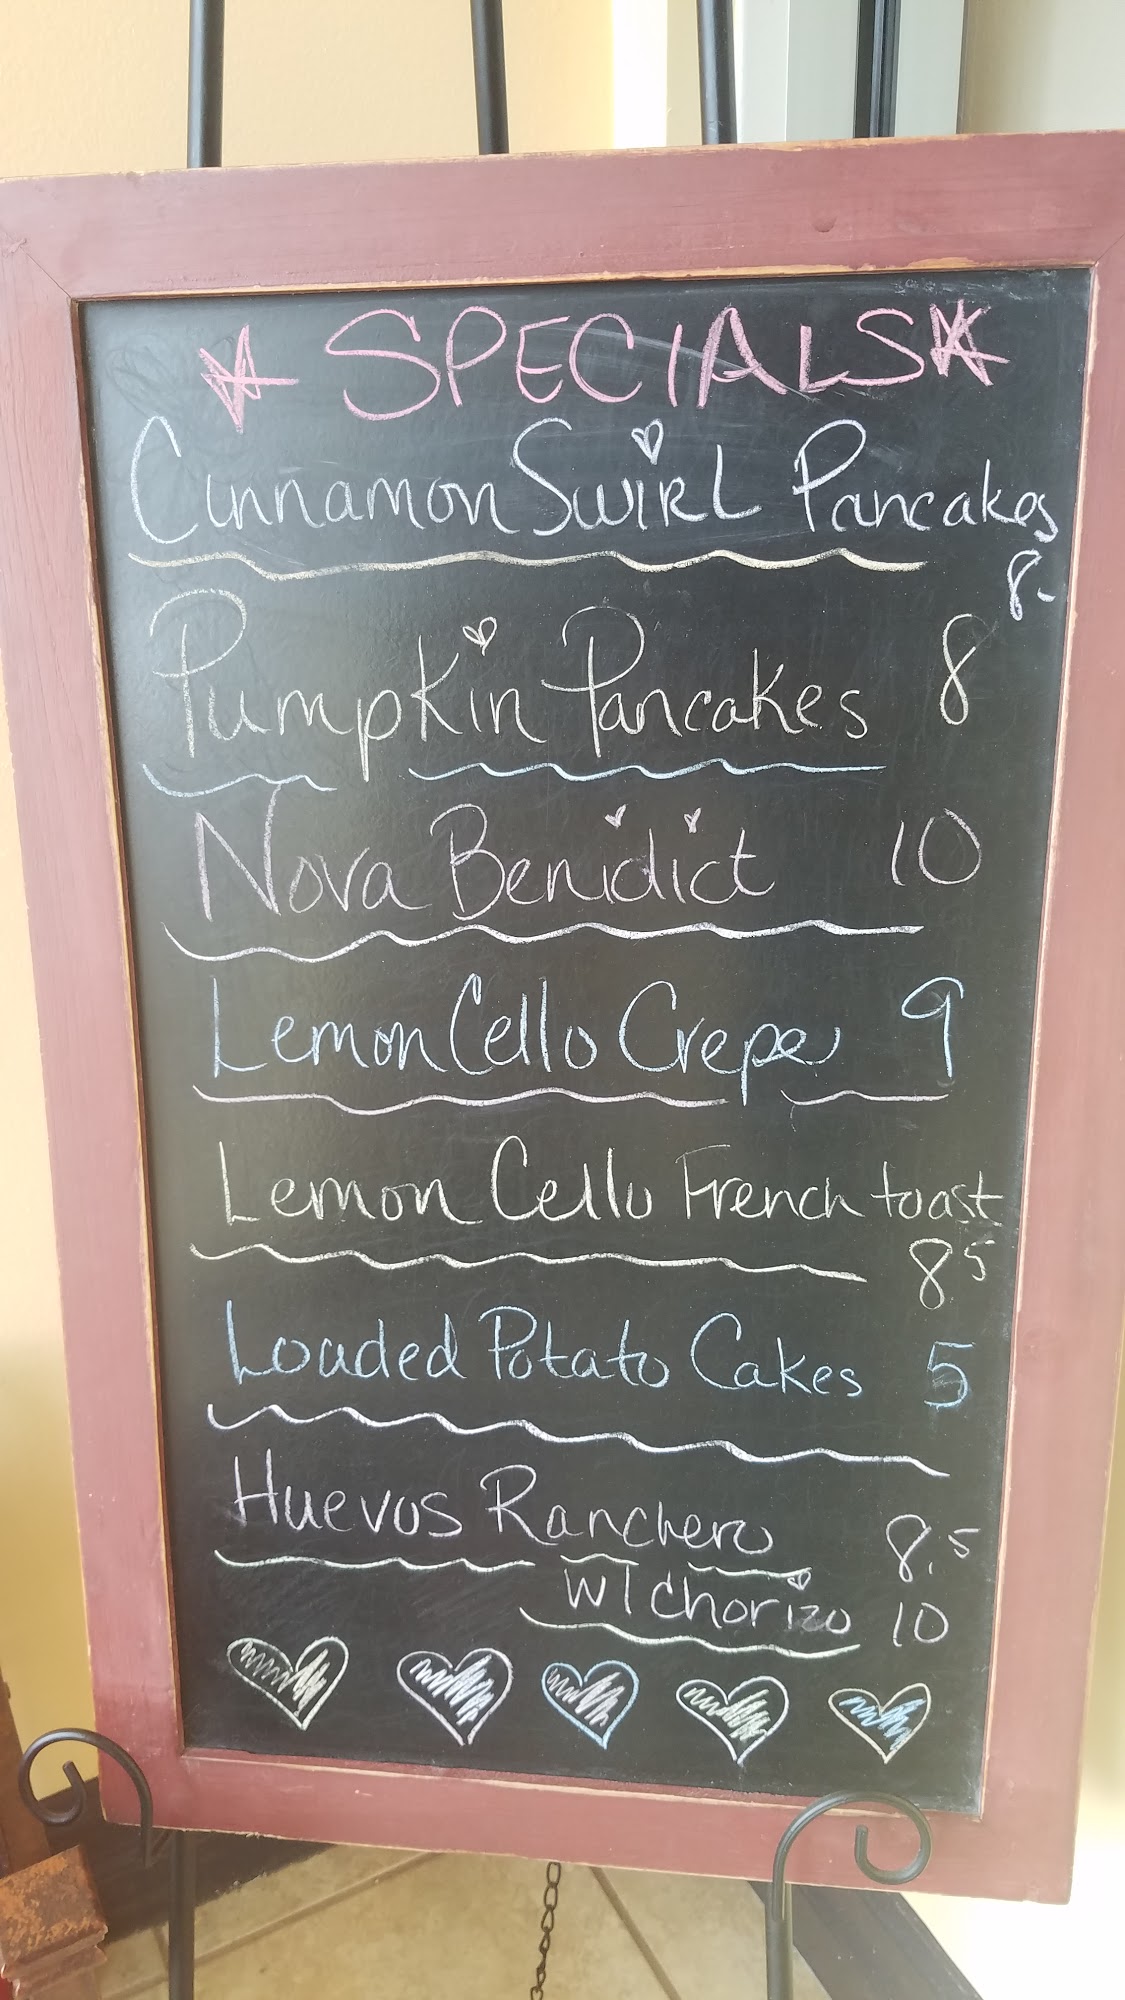 SPECIALS
Cinnamon Swirl Pancakes
8.
Pumpkin Pancakes 8
Nova Benidict 10
Lemon Cello Crepe 9
Lemon Cello French toast
8.5
Loaded Potato Cakes 5
Huevos Ranchero 8.5
w/chorizo 10